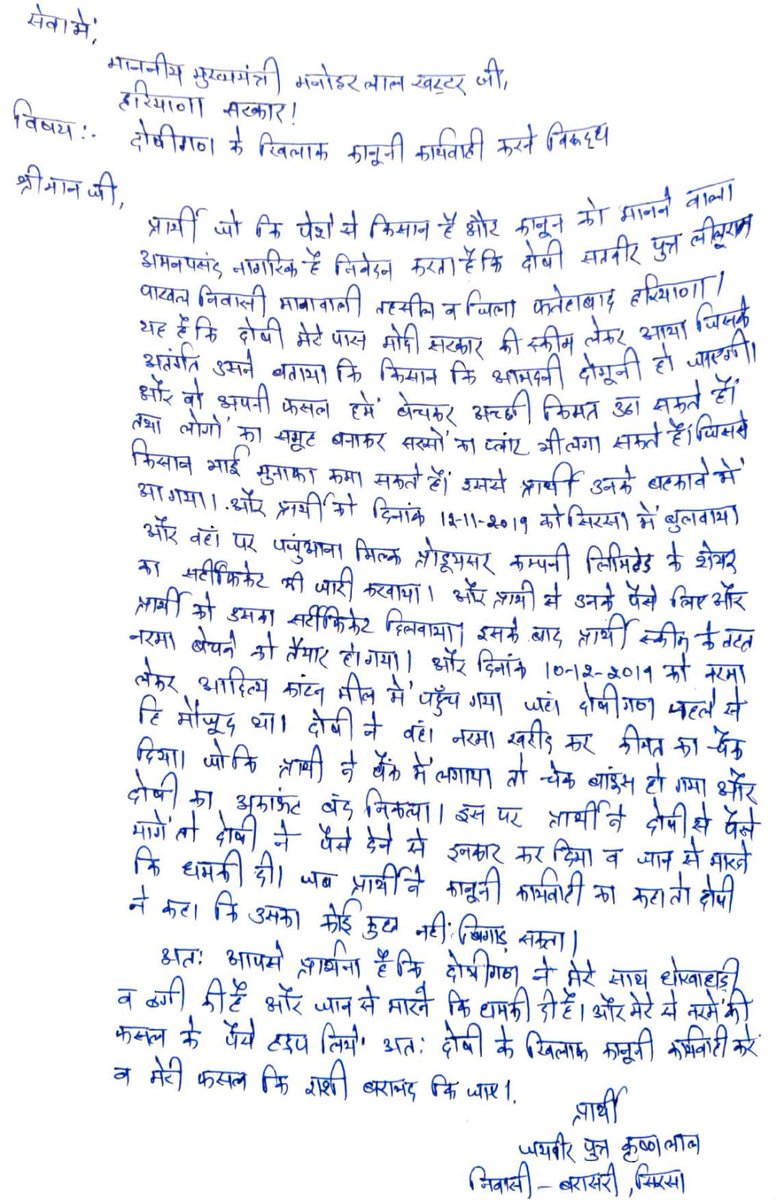 सेवा में,
माननीय मुख्यमंत्री मनोहर लाल खट्टर जी,
हरियाणा सरकार!
विषय:- दोषीगण के खिलाफ कानूनी कार्यवाही करने विरूद्ध
श्रीमान जी,
प्रार्थी जो कि पेशे से किसान है और कानून को मानने वाला
अमनपसंद नागरिक है निवेदन करता है कि दोषी सतवीर पुत्र लीलूराम
निवासी तहसील व जिला फतेहाबाद हरियाणा।
यह है कि दोषी मेरे पास मोदी सरकार की स्कीम लेकर आया जिसके
अतंर्गत उसने बताया कि किसान कि आमदनी दोगूनी हो जाएगी।
और वो अपनी फसल हमें बेचकर अच्छी किमत उठा सकते हैं
तथा लोगों का समूह बनाकर सरसों का प्लांट भी लगा सकते हैं। जिससे
किसान भाई मुनाफा कमा सकते हैं। इससे प्रार्थी उनके बहकावे में
आ गया। और प्रार्थी को दिनांक 12-11-2019 को सिरसा में बुलवाया
और वहां पर मिल्क प्रोडूयसर कम्पनी लिमिटेड के शेयर
का सर्टीफिकेट भी जारी करवाया। और प्रार्थी से उनके पैसे लिए और
प्रार्थी को उसका सर्टीफिकेट दिलवाया। इसके बाद प्रार्थी स्कीम के तहत
नरमा बेचने को तैयार हो गया। और दिनांक 10-12-2019 को नरमा
लेकर आदित्य काटन मील में पहुँच गया जहां दोषीगण पहले से
हि मौजूद था। दोषी ने वहां नरमा खरीद कर कीमत का चैक
दिया। जोकि प्रार्थी ने बैंक में लगाया तो चेक बांउस हो गया और
दोषी का अकांऊट बंद निकला। इस पर प्रार्थी ने दोषी से पैसे
मांगे तो दोषी ने पैसे देने से इनकार कर दिया व जान से मारने
कि धमकी दी। जब प्रार्थी ने कानूनी कार्यवाही का कहा तो दोषी
ने कहा कि उसका कोई कुछ नहीं बिगाड़ सकता।
अत: आपसे प्रार्थना है कि दोषीगण ने मेरे साथ धोखाधड़ी
व ठगी की है और जान से मारने कि धमकी दी है। और मेरे से नरमें की
फसल के पैसे हड़प लिये अत: दोषी के खिलाफ कानूनी कार्यवाही करें
व मेरी फसल कि राशी बरामद कि जाए।
प्रार्थी
जयवीर पुत्र कृष्ण लाल
निवासी - बरासरी, सिरसा